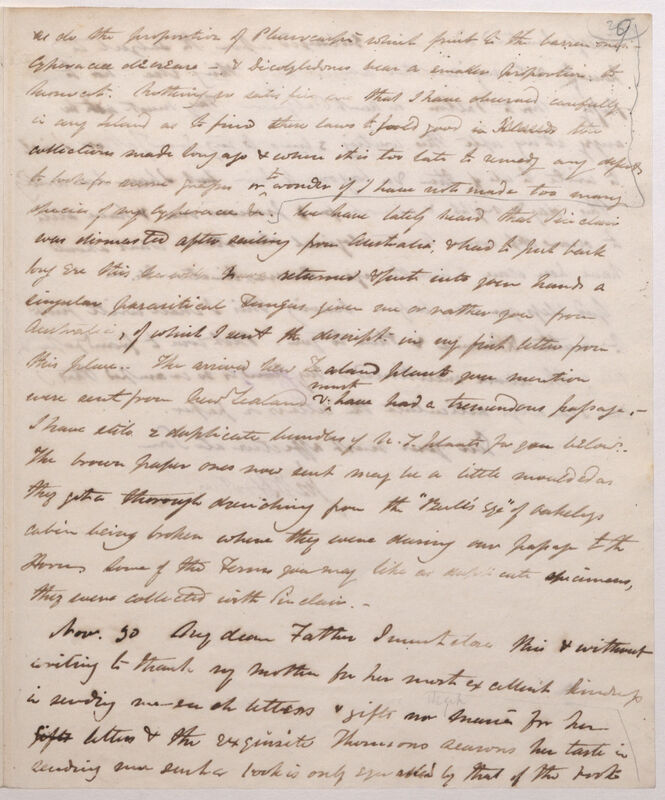 as do the proportion of Pleurocarpi which fruit to the barren ones.
Cyperaceae decrease – & Dicotyledones bear a smaller proportion to
Monocot: Nothing so satisfies me that I have observed carefully
in any Island as to find these laws to hold good in Islands
collections made long ago & when it is too late to remedy any defects
to look for more grapes or to wonder if I have not made too many
species of my Cyperaceae &c. We have lately heard that Sinclair
was dismasted after sailing from Australia, & had to put back
long ere this he will have returned & put into your hands a
singular parasitical Fungus given me or rather you from
Australia, of which I sent the descript: in my first letter from
this place.. The arrived New Zealand plants you mention
were sent from New Zealand & must have had a tremendous passage. –
I have still 2 duplicate bundles of N. Z. plants for you below.
The brown paper ones now sent may be a little moulded as
they got a thorough drenching from the "Bull's Eye" of Oakeleys
cabin being broken where they were during our passage to the
Horn, some of the Ferns you may like as duplicate specimens,
they were collected with Sinclair. –
Nov. 30 My dear Father I must close this & without
writing to thank my mother for her most excellent kindness
in sending me such letters & gifts nor Maria for her
gifts letters & the exquisite Thomsons Seasons her taste in
sending me such a book is only equalled by that of the book